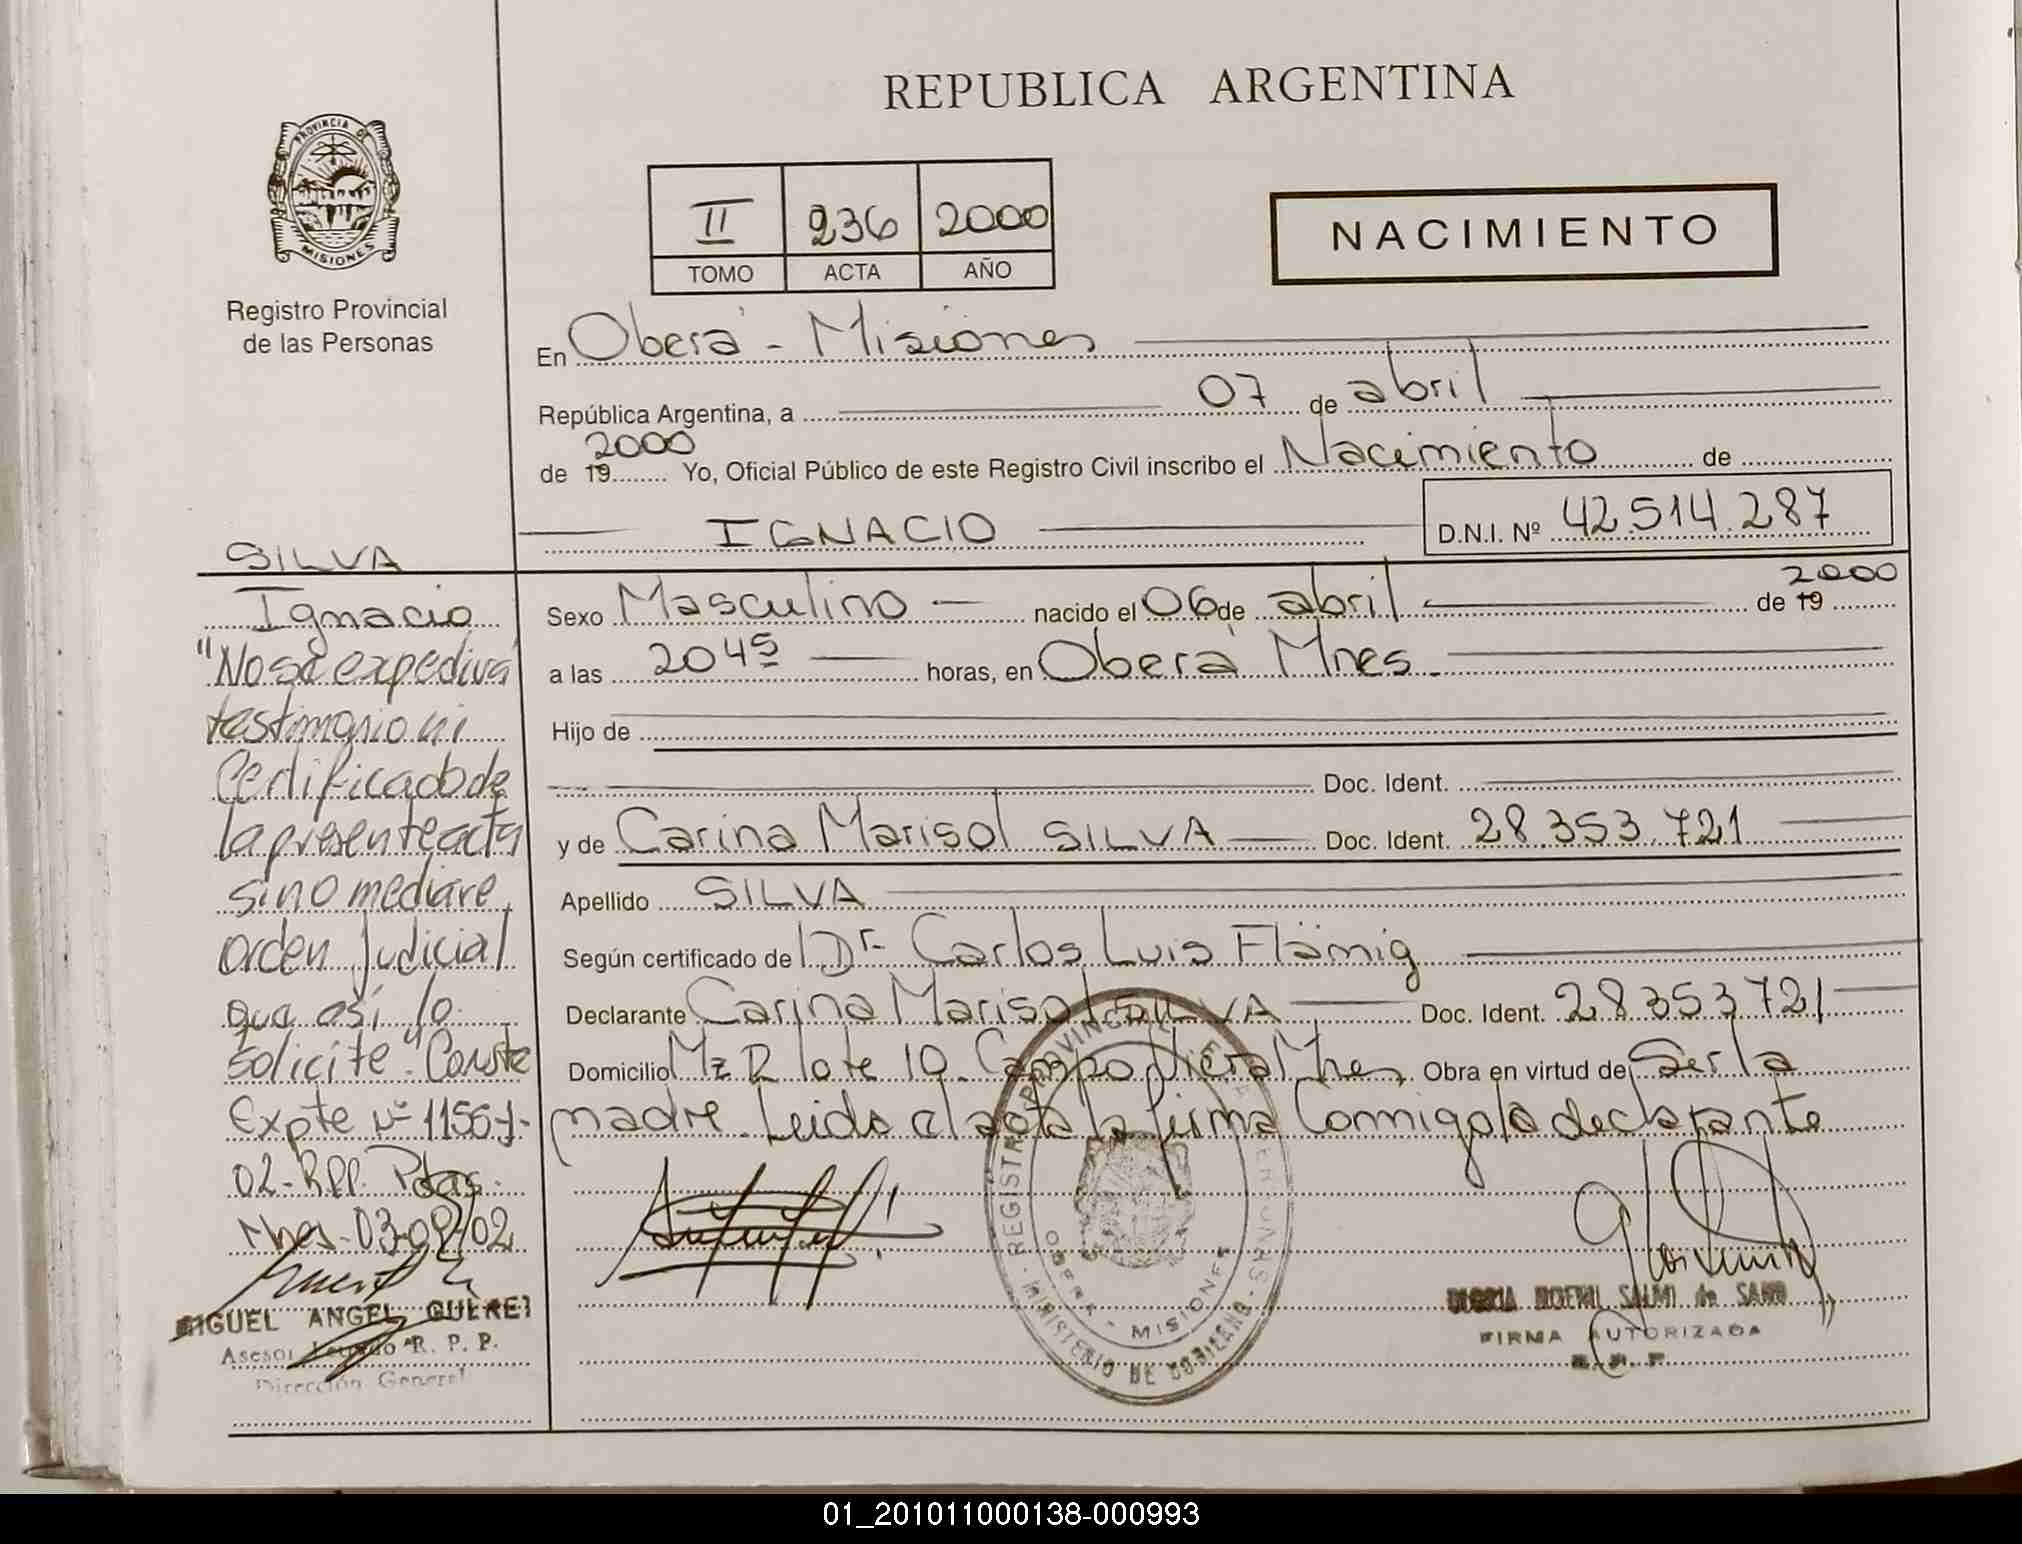 REPUBLICA ARGENTINA
PROVINCIA DE
MISIONES
Registro Provincial
de las Personas
II 236 2000
TOMO ACTA AÑO
NACIMIENTO
En Oberá - Misiones
República Argentina, a 07 de abril
de 19 2000 Yo, Oficial Público de este Registro Civil inscribo el Nacimiento de
IGNACIO
D.N.I. Nº 42.514.287
Sexo Masculino nacido el 06 de abril de 19 2000
a las 20 45 horas, en Oberá Mnes.
Hijo de
Doc. Ident.
y de Carina Marisol SILVA Doc. Ident. 28.353.721
Apellido SILVA
Según certificado de Dr. Carlos Luis Flämig
Declarante Carina Marisol SILVA Doc. Ident. 28353721
Domicilio Mz D lote 10 Campo Viera Mnes Obra en virtud de Ser la
madre. Leída el acta la firma Conmigo la declarante
SILVA
Ignacio
"No se expedirá
testimonio ni
Certificado de
la presente acta
sino mediare
orden Judicial
que así lo
solicite". Conste
Expte Nº
02-RPP. Pdas.
Mnes.
MIGUEL ANGEL GUERET
Asesor R. P. P.
Dirección General
OBERA - MISIONES
MINISTERIO DE GOBIERNO
SALMI de
FIRMA AUTORIZADA
01_201011000138-000993